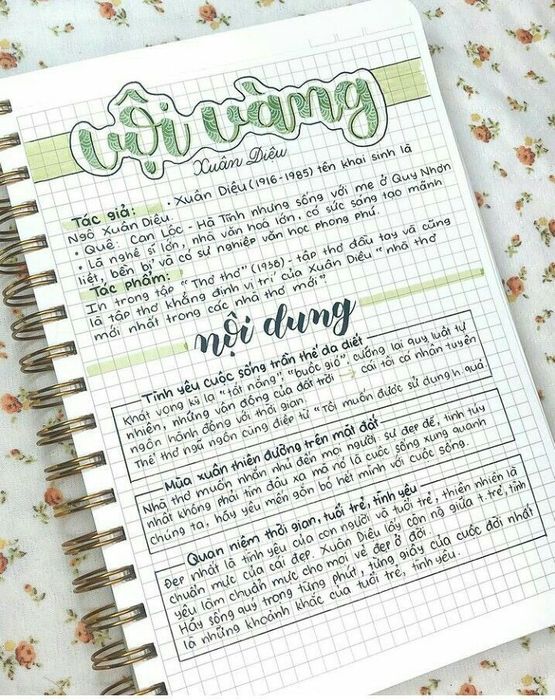 vội vàng
Xuân Diệu
Tác giả: · Xuân Diệu (1916-1985) tên khai sinh là
Ngô Xuân Diệu.
• Quê: Can Lộc - Hà Tĩnh nhưng sống với mẹ ở Quy Nhơn
• Là nghệ sĩ lớn, nhà văn hoá lớn, có sức sáng tạo mãnh
liệt, bền bỉ và có sự nghiệp văn học phong phú.
Tác phẩm:
In trong tập "Thơ thơ" (1938) - tập thơ đầu tay và cũng
là tập thơ khẳng định vị trí của Xuân Diệu "nhà thơ
mới nhất trong các nhà thơ mới"
nội dung
Tình yêu cuộc sống trần thế da diết
Khát vọng kì lạ "tắt nắng", "buộc gió", cưỡng lại quy luật tự
nhiên, những vận động của đất trời → cái tôi cá nhân tuyên
ngôn hành động với thời gian.
Thể thơ ngũ ngôn cùng điệp từ "Tôi muốn được sử dụng h quả
Mùa xuân thiên đường trên mặt đất
Nhà thơ muốn nhắn nhủ đến mọi người: sự đẹp đẽ, tinh túy
nhất không phải tìm đâu xa mà nó là cuộc sống xung quanh
chúng ta, hãy yêu mến gắn bó hết mình với cuộc sống.
Quan niệm thời gian, tuổi trẻ, tình yêu
Đẹp nhất là tình yêu của con người và tuổi trẻ, thiên nhiên là
chuẩn mực của cái đẹp. Xuân Diệu lấy con ng giữa t trẻ, tình
yêu làm chuẩn mực cho mọi vẻ đẹp ở đời.
Hãy sống quý trong từng phút, từng giây của cuộc đời nhất
là những khoảnh khắc của tuổi trẻ, tình yêu.